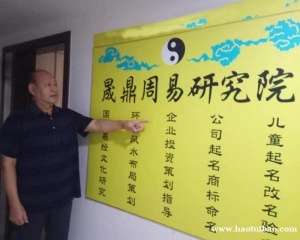 晟鼎周易研究院
儿童起名改名
公司起名商标命名
企业投资策划指导
环境风水布局策划
国际易经文化研究
www.haotuiban.com